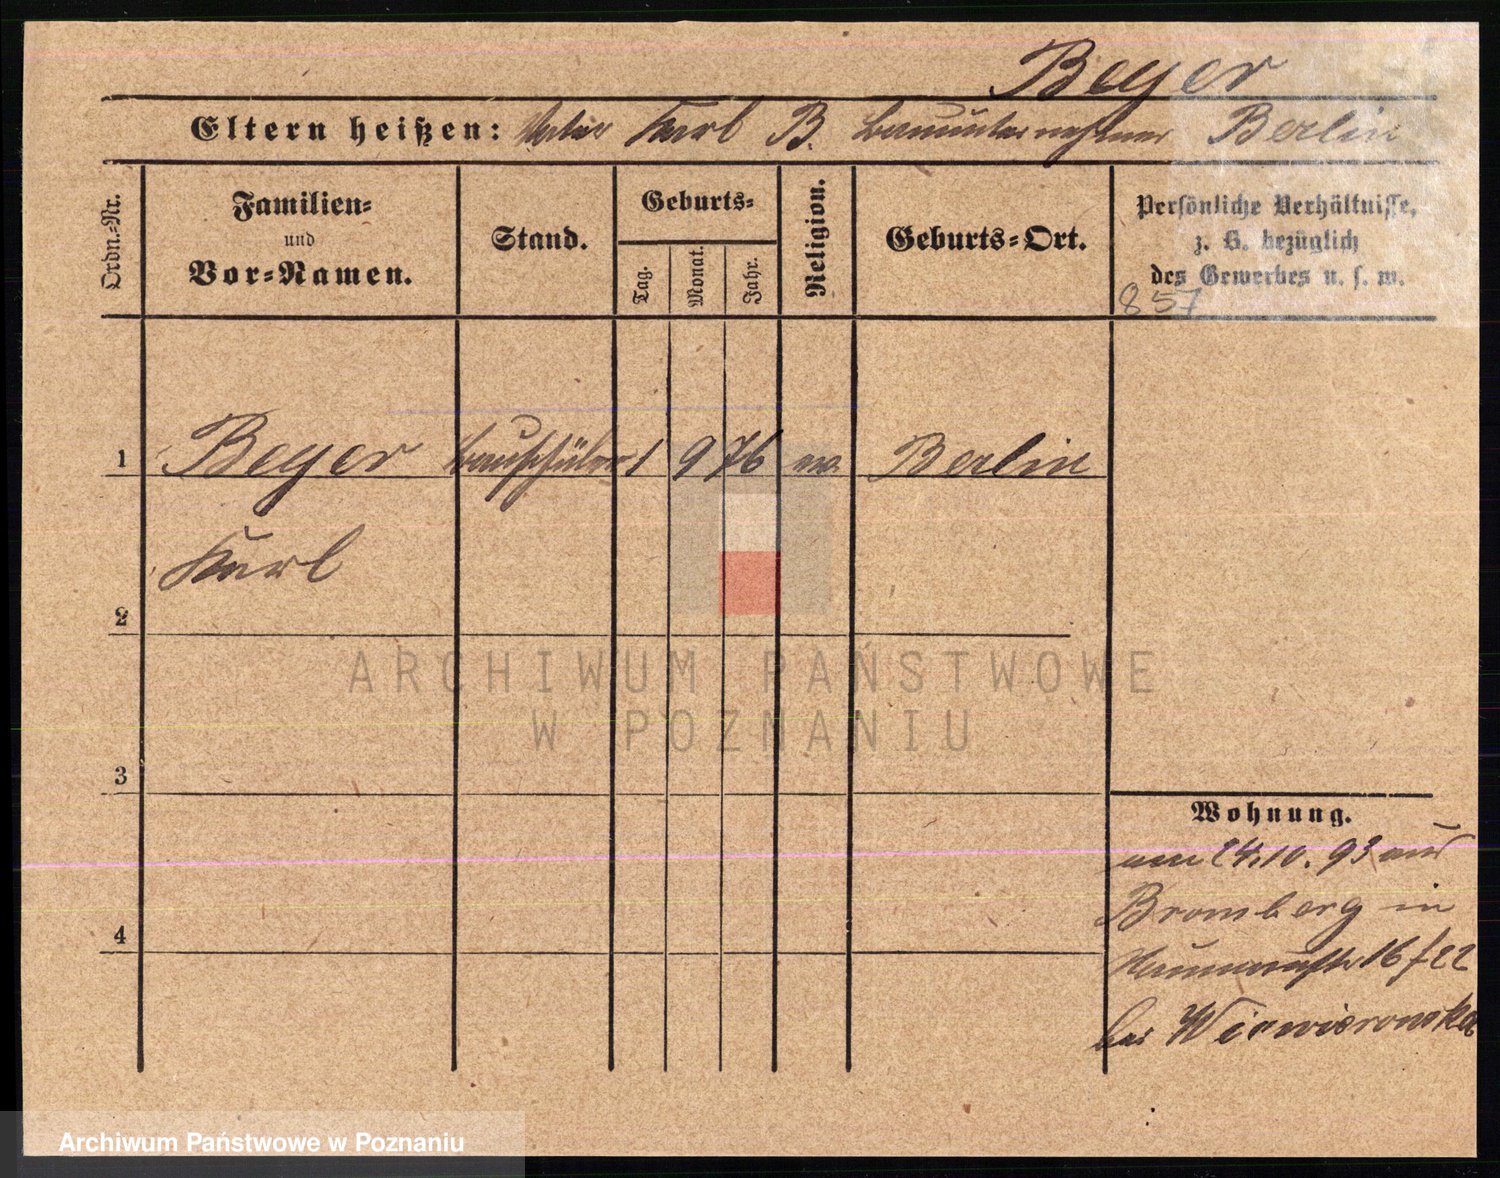 Beyer
Eltern heißen: Vater Karl B. Bauunternehmer Berlin
Ordn.-Nr.
Familien-
und
Vor-Namen.
Stand.
Geburts-
Tag.
Monat.
Jahr.
Religion.
Geburts-Ort.
Persönliche Verhältnisse,
z. B. bezüglich
des Gewerbes u. s. w.
857
1 Beyer Bauschüler 1 9 76 ev. Berlin
Karl
2
ARCHIWUM PAŃSTWOWE
W POZNANIU
3
Wohnung.
am 24.10.93 aus
Bromberg in
16/22
4
bei Wiewiorowska
Archiwum Państwowe w Poznaniu